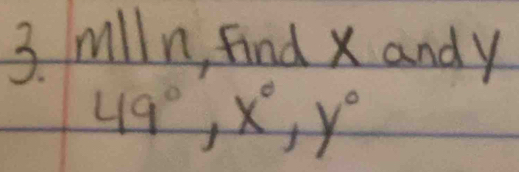 3. m||n, find x and y
49°, x°, y°